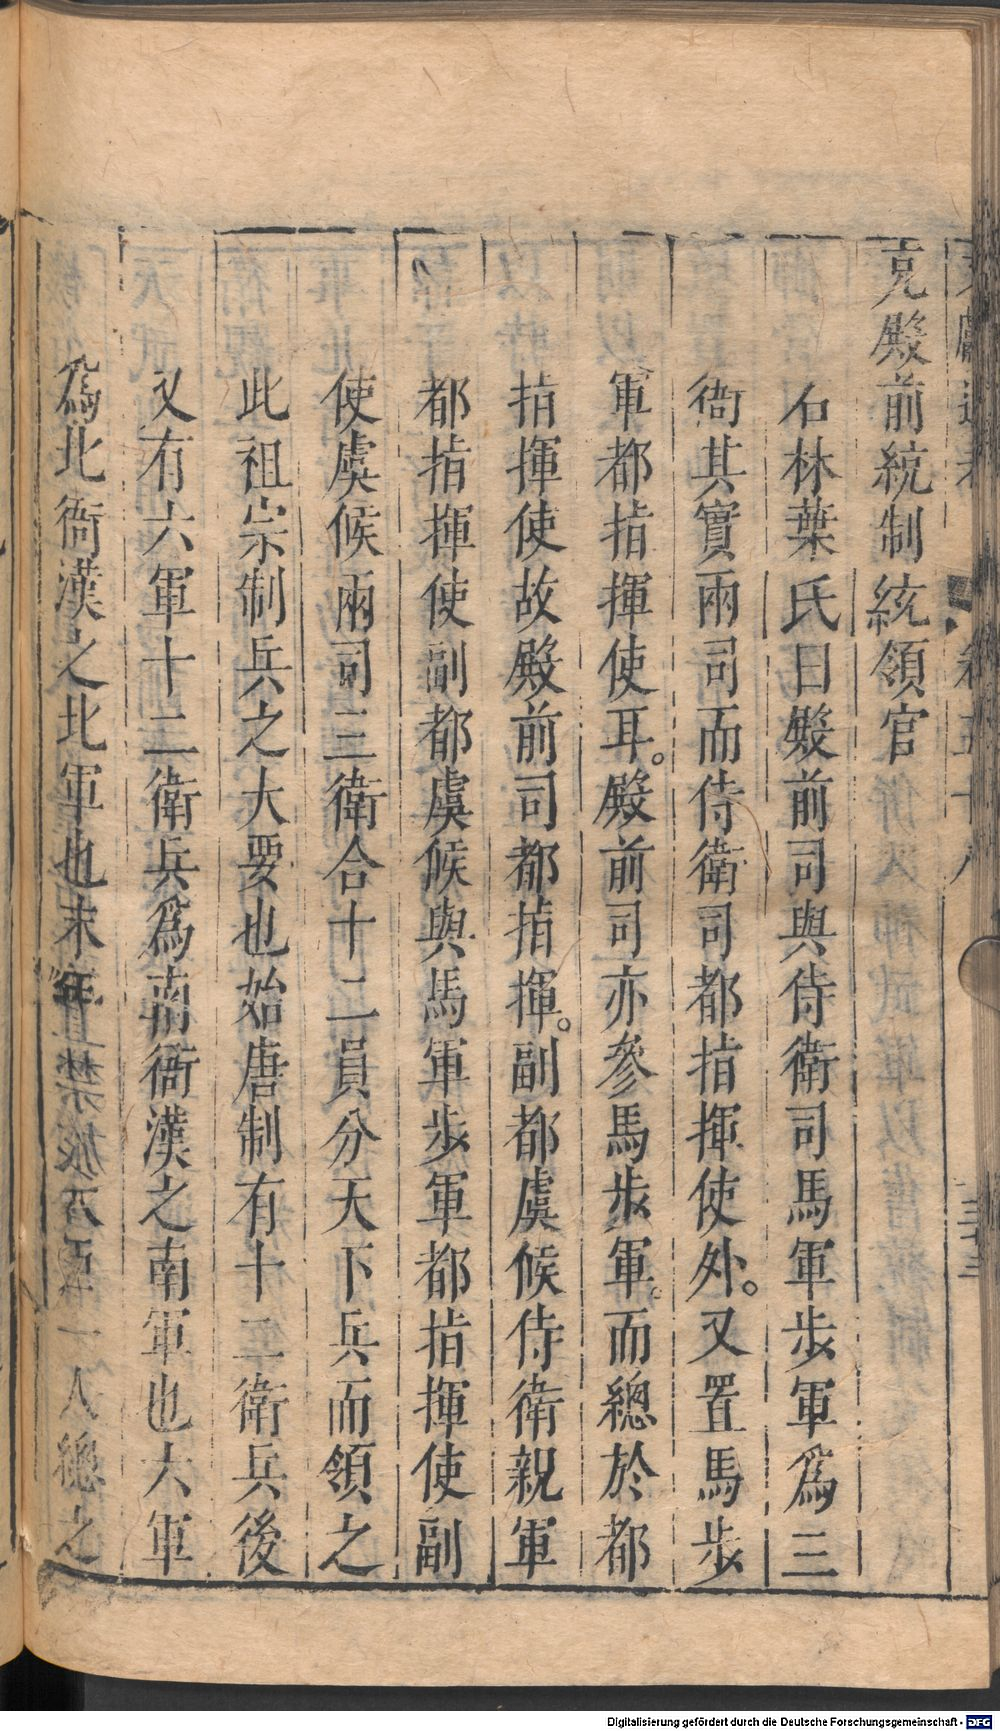 克殿前統制統領官
石林葉氏曰殿前司與侍衛司馬軍步軍爲三
衙其實兩司而侍衛司都指揮使外。又置馬步
軍都指揮使耳。殿前司亦參馬步軍。而總於都
指揮使故殿前司都指揮。副都虞候侍衛親軍
都指揮使副都虞候與馬軍步軍都指揮使副
使虞候兩司三衛合十二員分天下兵而領之
此祖宗制兵之大要也始唐制有十二衛兵後
又有六軍十二衛兵爲南衙漢之南軍也六軍
爲北衙漢之北軍也末年
一人總之
Digitalisierung gefördert durch die Deutsche Forschungsgemeinschaft - DFG